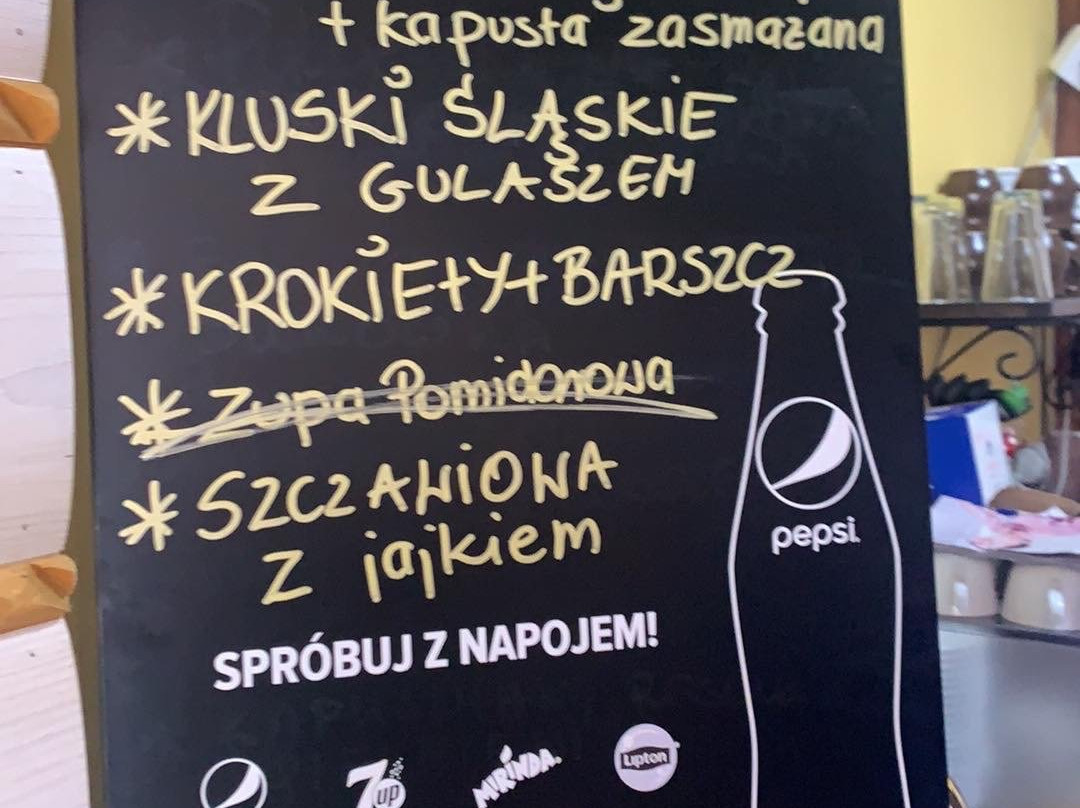 + kapusta zasmażana
* KLUSKI ŚLĄSKIE
Z GULASZEM
* KROKIETY + BARSZCZ
* Zupa Pomidorowa
* SZCZAWIOWA
Z jajkiem
pepsi
SPRÓBUJ Z NAPOJEM!
7up MIRINDA Lipton